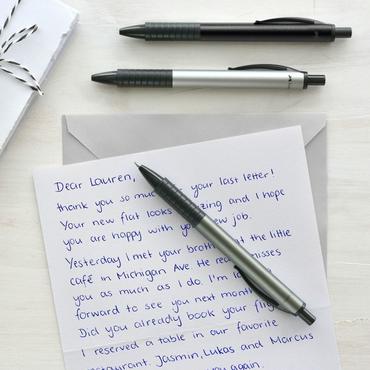 Dear Lauren,
thank you so much your last letter!
Your new flat looks zing and I hope
you are happy with you w job.
Yesterday I met your broth at the little
café in Michigan Ave. He rea misses
you as much as I do. I'm l
forward to see you next mont
Did you already book your flig
I reserved a table in our favorite
staurant. Jasmin, Lukas and Marcus
you again.